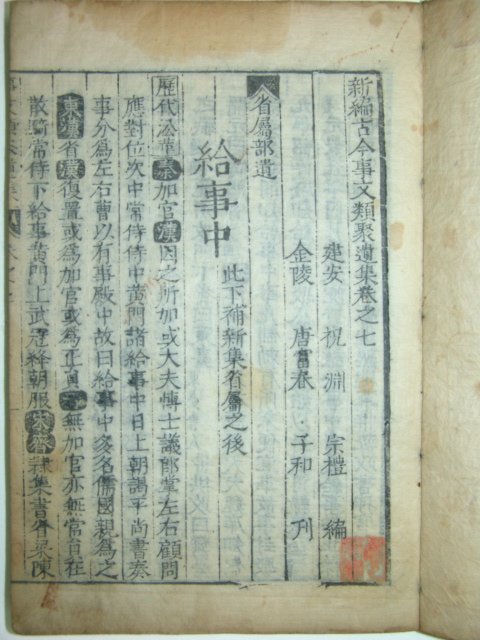 新編古今事文類聚遺集卷之七
建安 祝淵 宗禮 編
金陵 唐富春 子和 刋
省屬部遺
給事中 此下補新集省屬之後
歷代沿革秦加官漢因之所加或大夫博士議郎掌左右顧問
應對位次中常侍侍中黃門諸給事中日上朝謁平尚書奏
事分為左右曹以有事殿中故曰給事中多名儒國親為之
東漢省魏復置或為加官或為正員晉無加官亦無常員在
散騎常侍下給事黃門上武冠絳朝服宋齊隷集書省梁陳